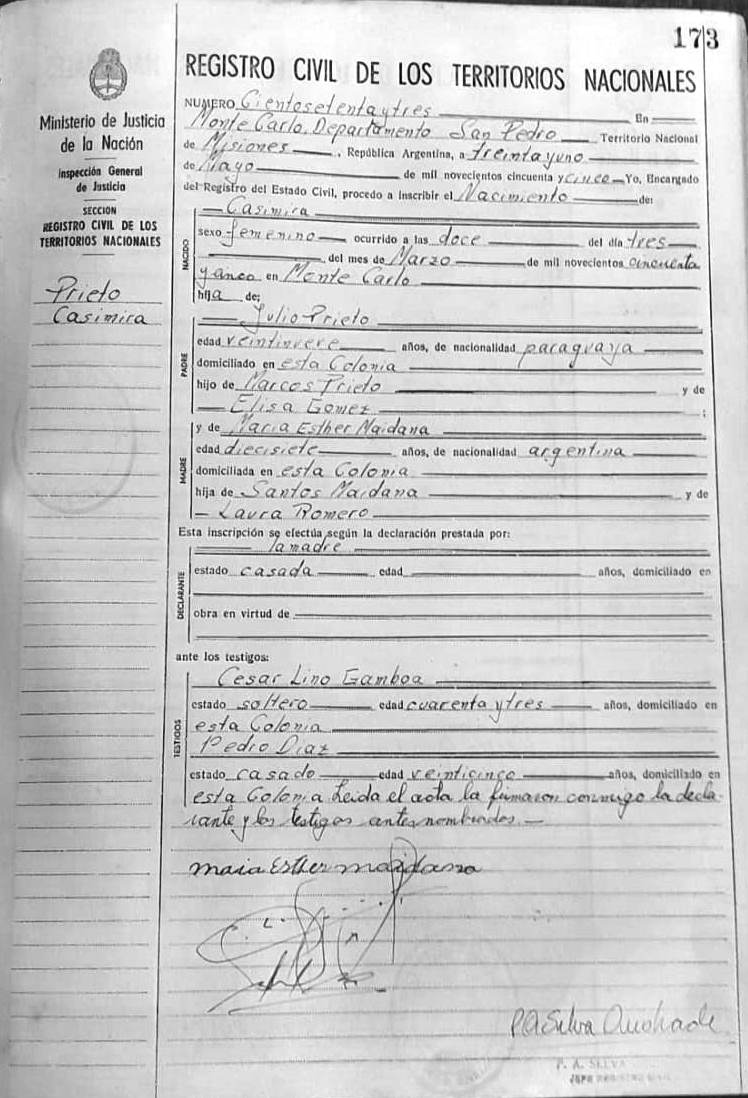 173
Ministerio de Justicia
de la Nación
Inspección General
de Justicia
SECCION
REGISTRO CIVIL DE LOS
TERRITORIOS NACIONALES
Prieto
Casimira
REGISTRO CIVIL DE LOS TERRITORIOS NACIONALES
NUMERO Cientosetentaytres En
Monte Carlo, Departamento San Pedro Territorio Nacional
de Misiones, República Argentina, a treintayuno
de Mayo de mil novecientos cincuenta y cinco Yo, Encargado
del Registro del Estado Civil, procedo a inscribir el Nacimiento de:
NACIDO
Casimira
sexo femenino ocurrido a las doce del día tres
del mes de Marzo de mil novecientos cincuenta
y cinco en Monte Carlo
hija de:
PADRE
Julio Prieto
edad veintinueve años, de nacionalidad paraguaya
domiciliado en esta Colonia
hijo de Marcos Prieto y de
Elisa Gomez ;
MADRE
y de Maria Esther Maidana
edad diecisiete años, de nacionalidad argentina
domiciliada en esta Colonia
hija de Santos Maidana y de
Laura Romero
Esta inscripción se efectúa según la declaración prestada por:
DECLARANTE
la madre
estado casada edad años, domiciliado en
obra en virtud de
ante los testigos:
TESTIGOS
Cesar Lino Gamboa
estado soltero edad cuarenta y tres años, domiciliado en
esta Colonia
Pedro Diaz
estado casado edad veinticinco años, domiciliado en
esta Colonia Leida el acta la firmaron conmigo la decla-
rante y los testigos antes nombrados.
maia Esther maidana
P A Silva Andrade
P. A. SILVA
JEFE REGISTRO CIVIL